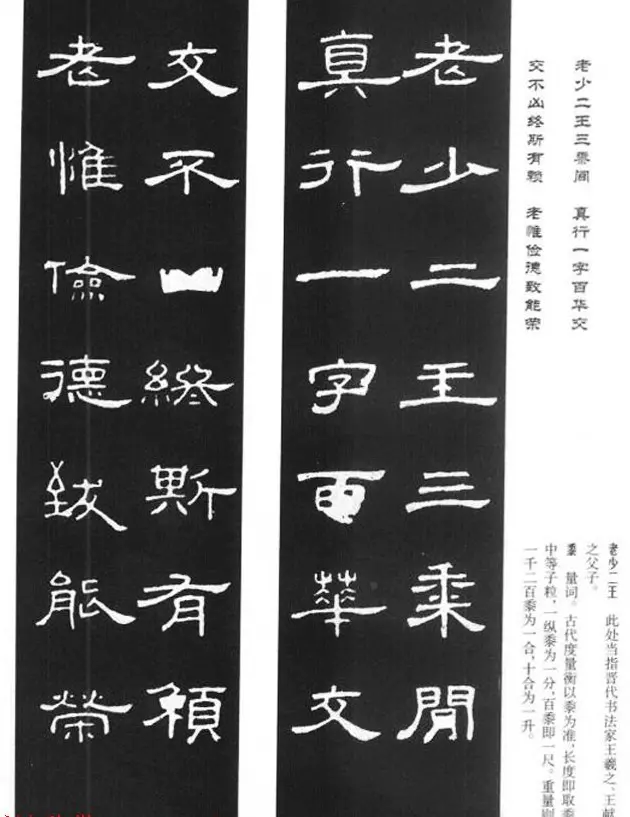 老少二王三黍间 真行一字百华交
交不凶终斯有赖 老惟俭德致能荣
老少二王 此处当指晋代书法家王羲之、王献
之父子。
黍 量词。古代度量衡以黍为准，长度即取黍
中等子粒，一纵黍为一分，百黍即一尺。重量则
一千二百黍为一合，十合为一升。
老少二王三黍閒
真行一字百華交
交不凶終斯有賴
老惟儉德致能榮